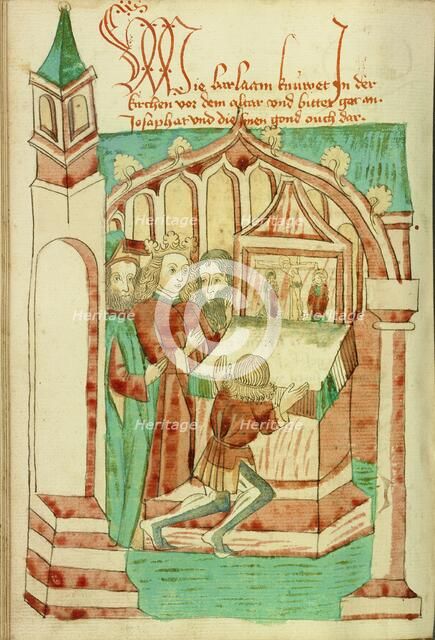 Wie barlaam knuwet In der
kirchen vor dem altar vnd bittet got an.
Josaphat vnd die jnen gond ouch dar.
Heritage Heritage Heritage
Heritage Heritage Heritage
Heritage Heritage
Heritage Heritage